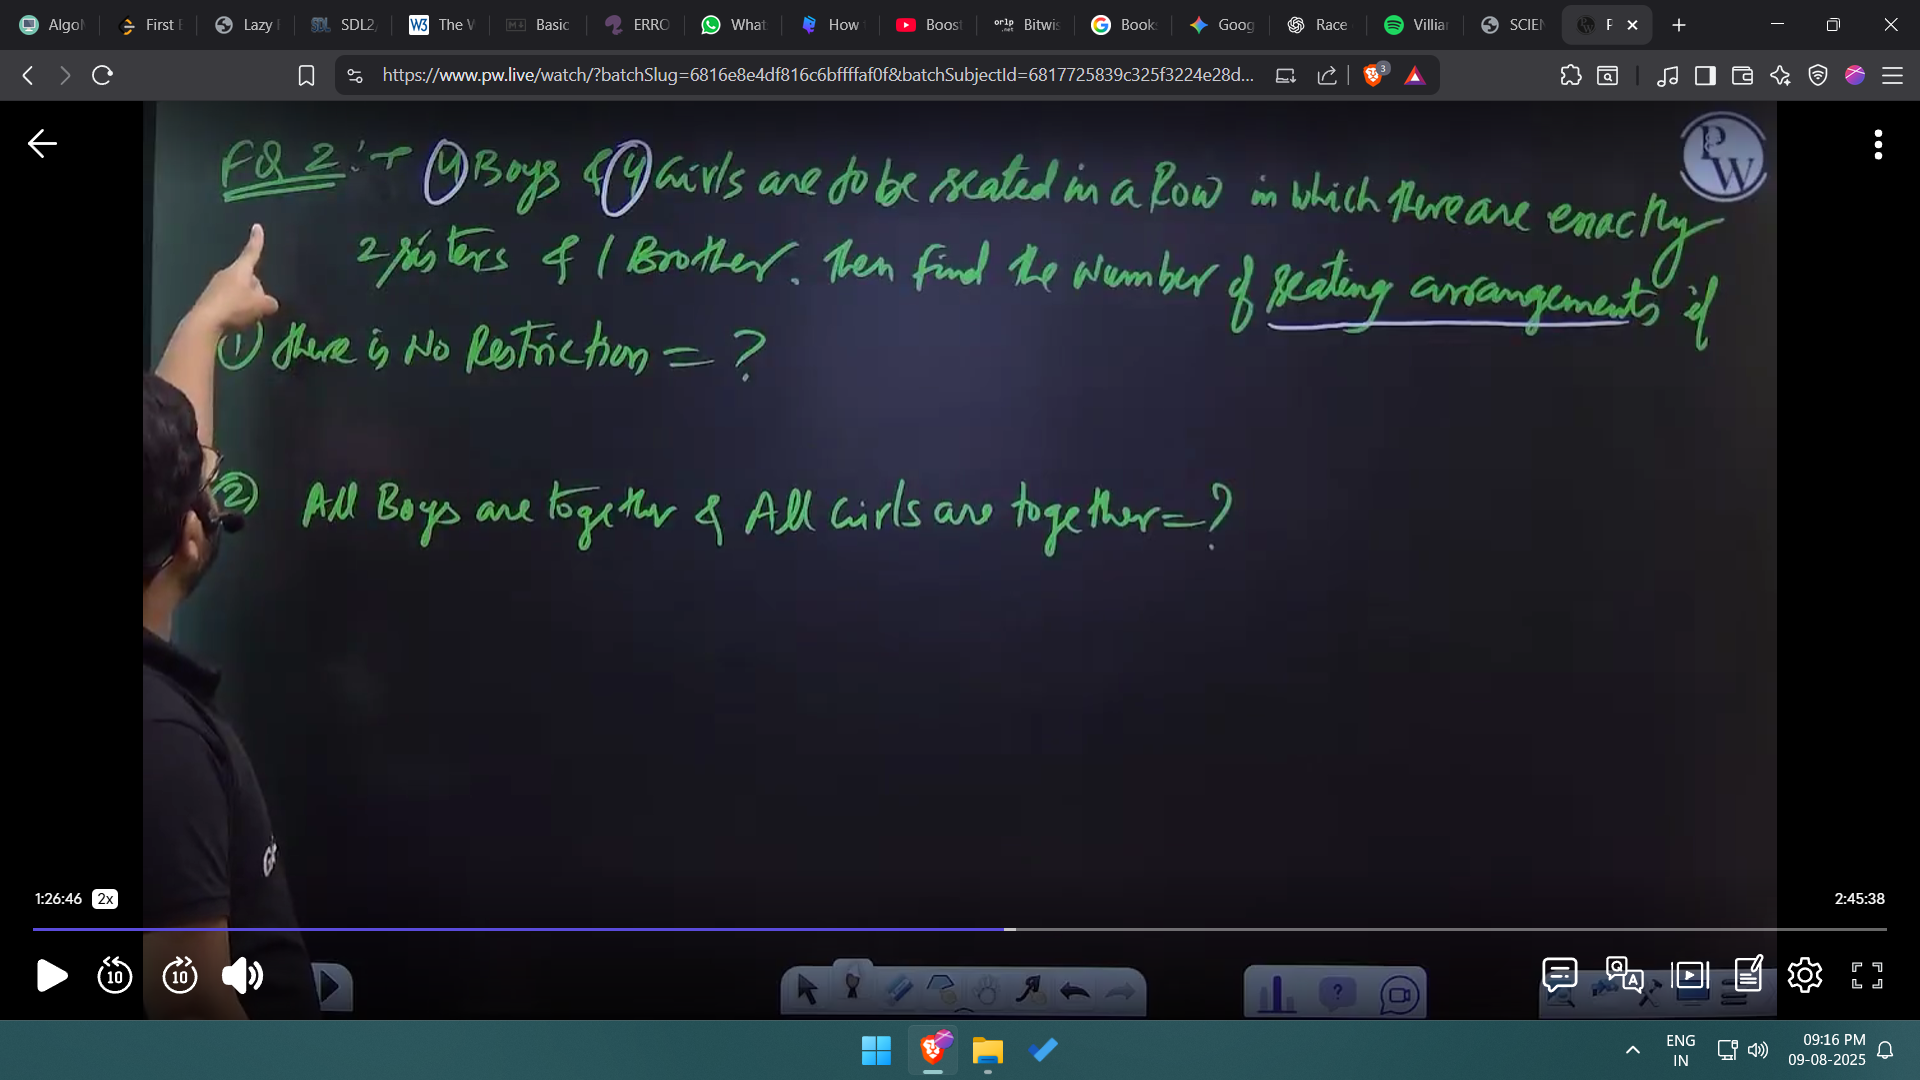 AlgoM
First E
Lazy
SDL2
The W
Basic
ERRO
What
How
Boost
Bitwis
Book
Goog
Race
Villian
SCIEN
P
https://www.pw.live/watch/?batchSlug=6816e8e4df816c6bffffaf0f&batchSubjectId=6817725839c325f3224e28d...
3
FQ 2:→ 4 Boys & 4 Girls are to be seated in a Row in which there are exactly
2 sisters & 1 Brother. then find the Number of seating arrangements if
PW
① there is No Restriction = ?
② All Boys are together & All Girls are together = ?
1:26:46 2x
2:45:38
10 10
ENG
IN
09:16 PM
09-08-2025